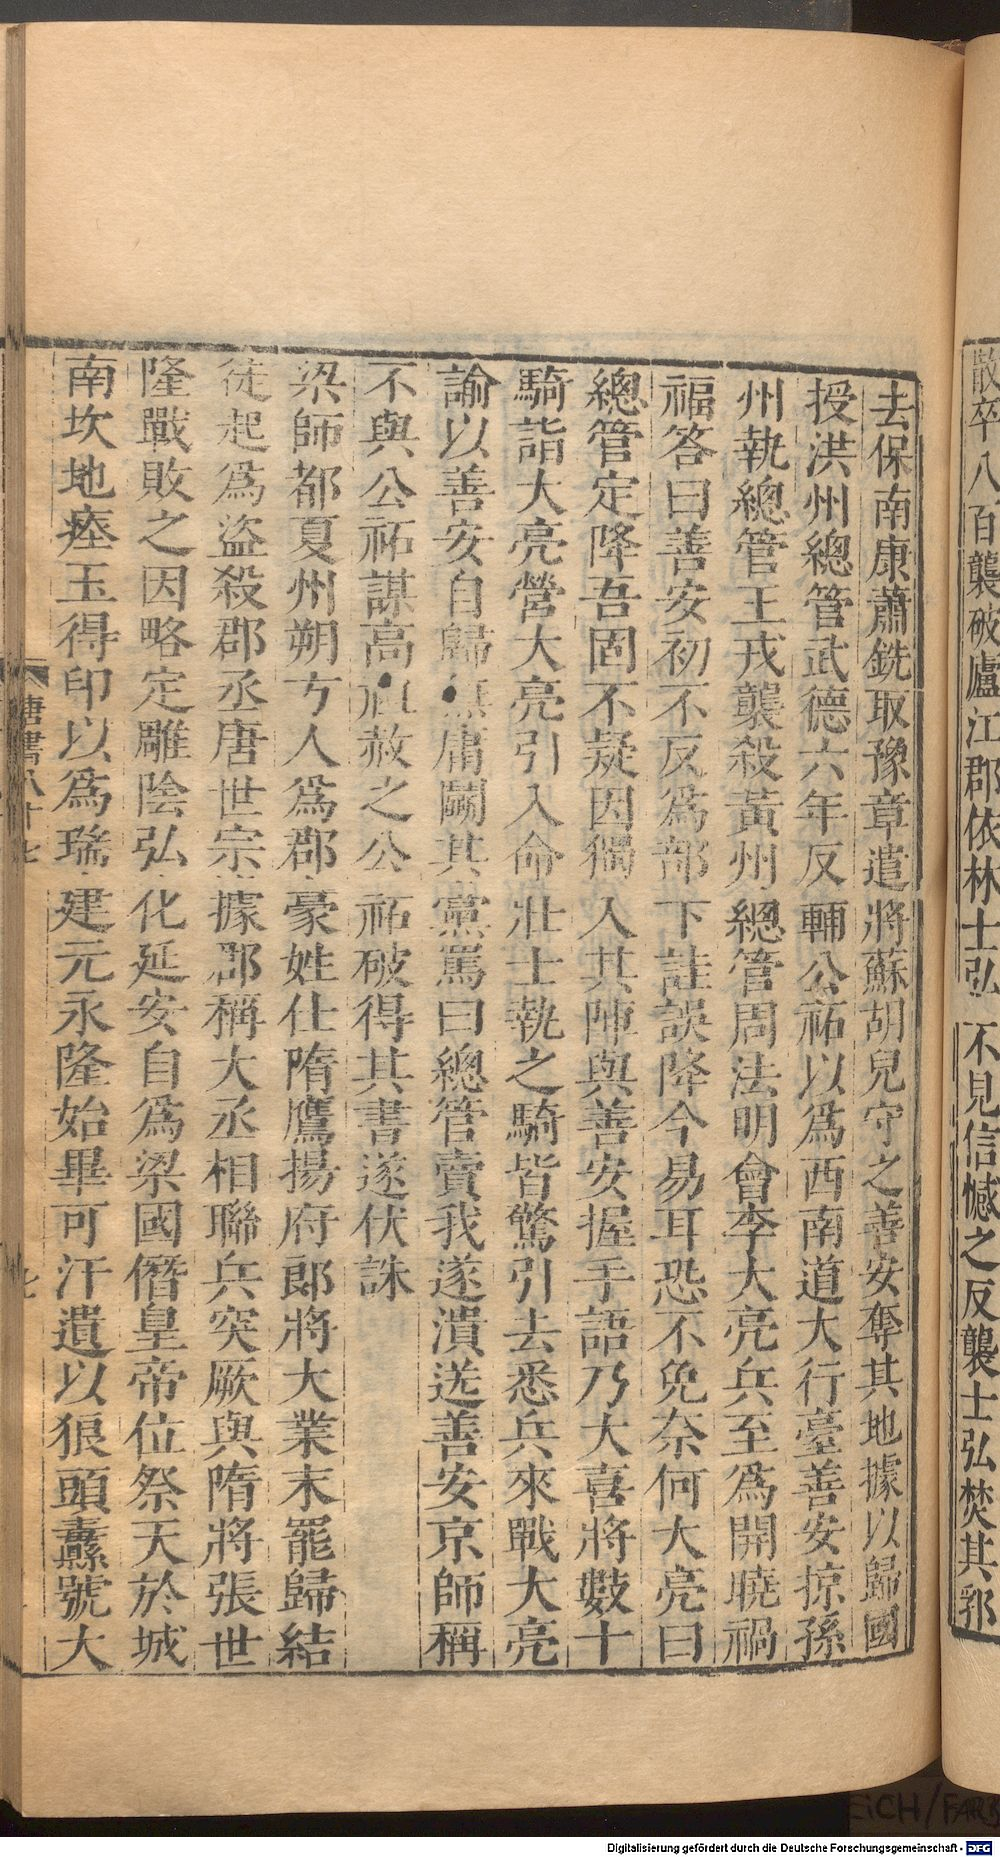 散卒八百襲破廬江郡依林士弘不見信憾之反襲士弘焚其郛
去保南康蕭銑取豫章遣將蘇胡兒守之善安奪其地據以歸國
授洪州總管武德六年反輔公祏以爲西南道大行臺善安掠孫
州執總管王戎襲殺黃州總管周法明會李大亮兵至爲開曉禍
福答曰善安初不反爲部下詿誤降今易耳恐不免奈何大亮曰
總管定降吾固不疑因獨入其陣與善安握手語乃大喜將數十
騎詣大亮營大亮引入命壯士執之騎皆驚引去悉兵來戰大亮
諭以善安自歸無庸鬬其黨罵曰總管賣我遂潰送善安京師稱
不與公祏謀高祖赦之公祏破得其書遂伏誅
梁師都夏州朔方人爲郡豪姓仕隋鷹揚府郎將大業末罷歸結
徒起爲盜殺郡丞唐世宗據郡稱大丞相聯兵突厥與隋將張世
隆戰敗之因略定雕陰弘化延安自爲梁國僭皇帝位祭天於城
南坎地瘞玉得印以爲瑞建元永隆始畢可汗遺以狼頭纛號大
唐書八十七
七
EICH/FARB
Digitalisierung gefördert durch die Deutsche Forschungsgemeinschaft - DFG